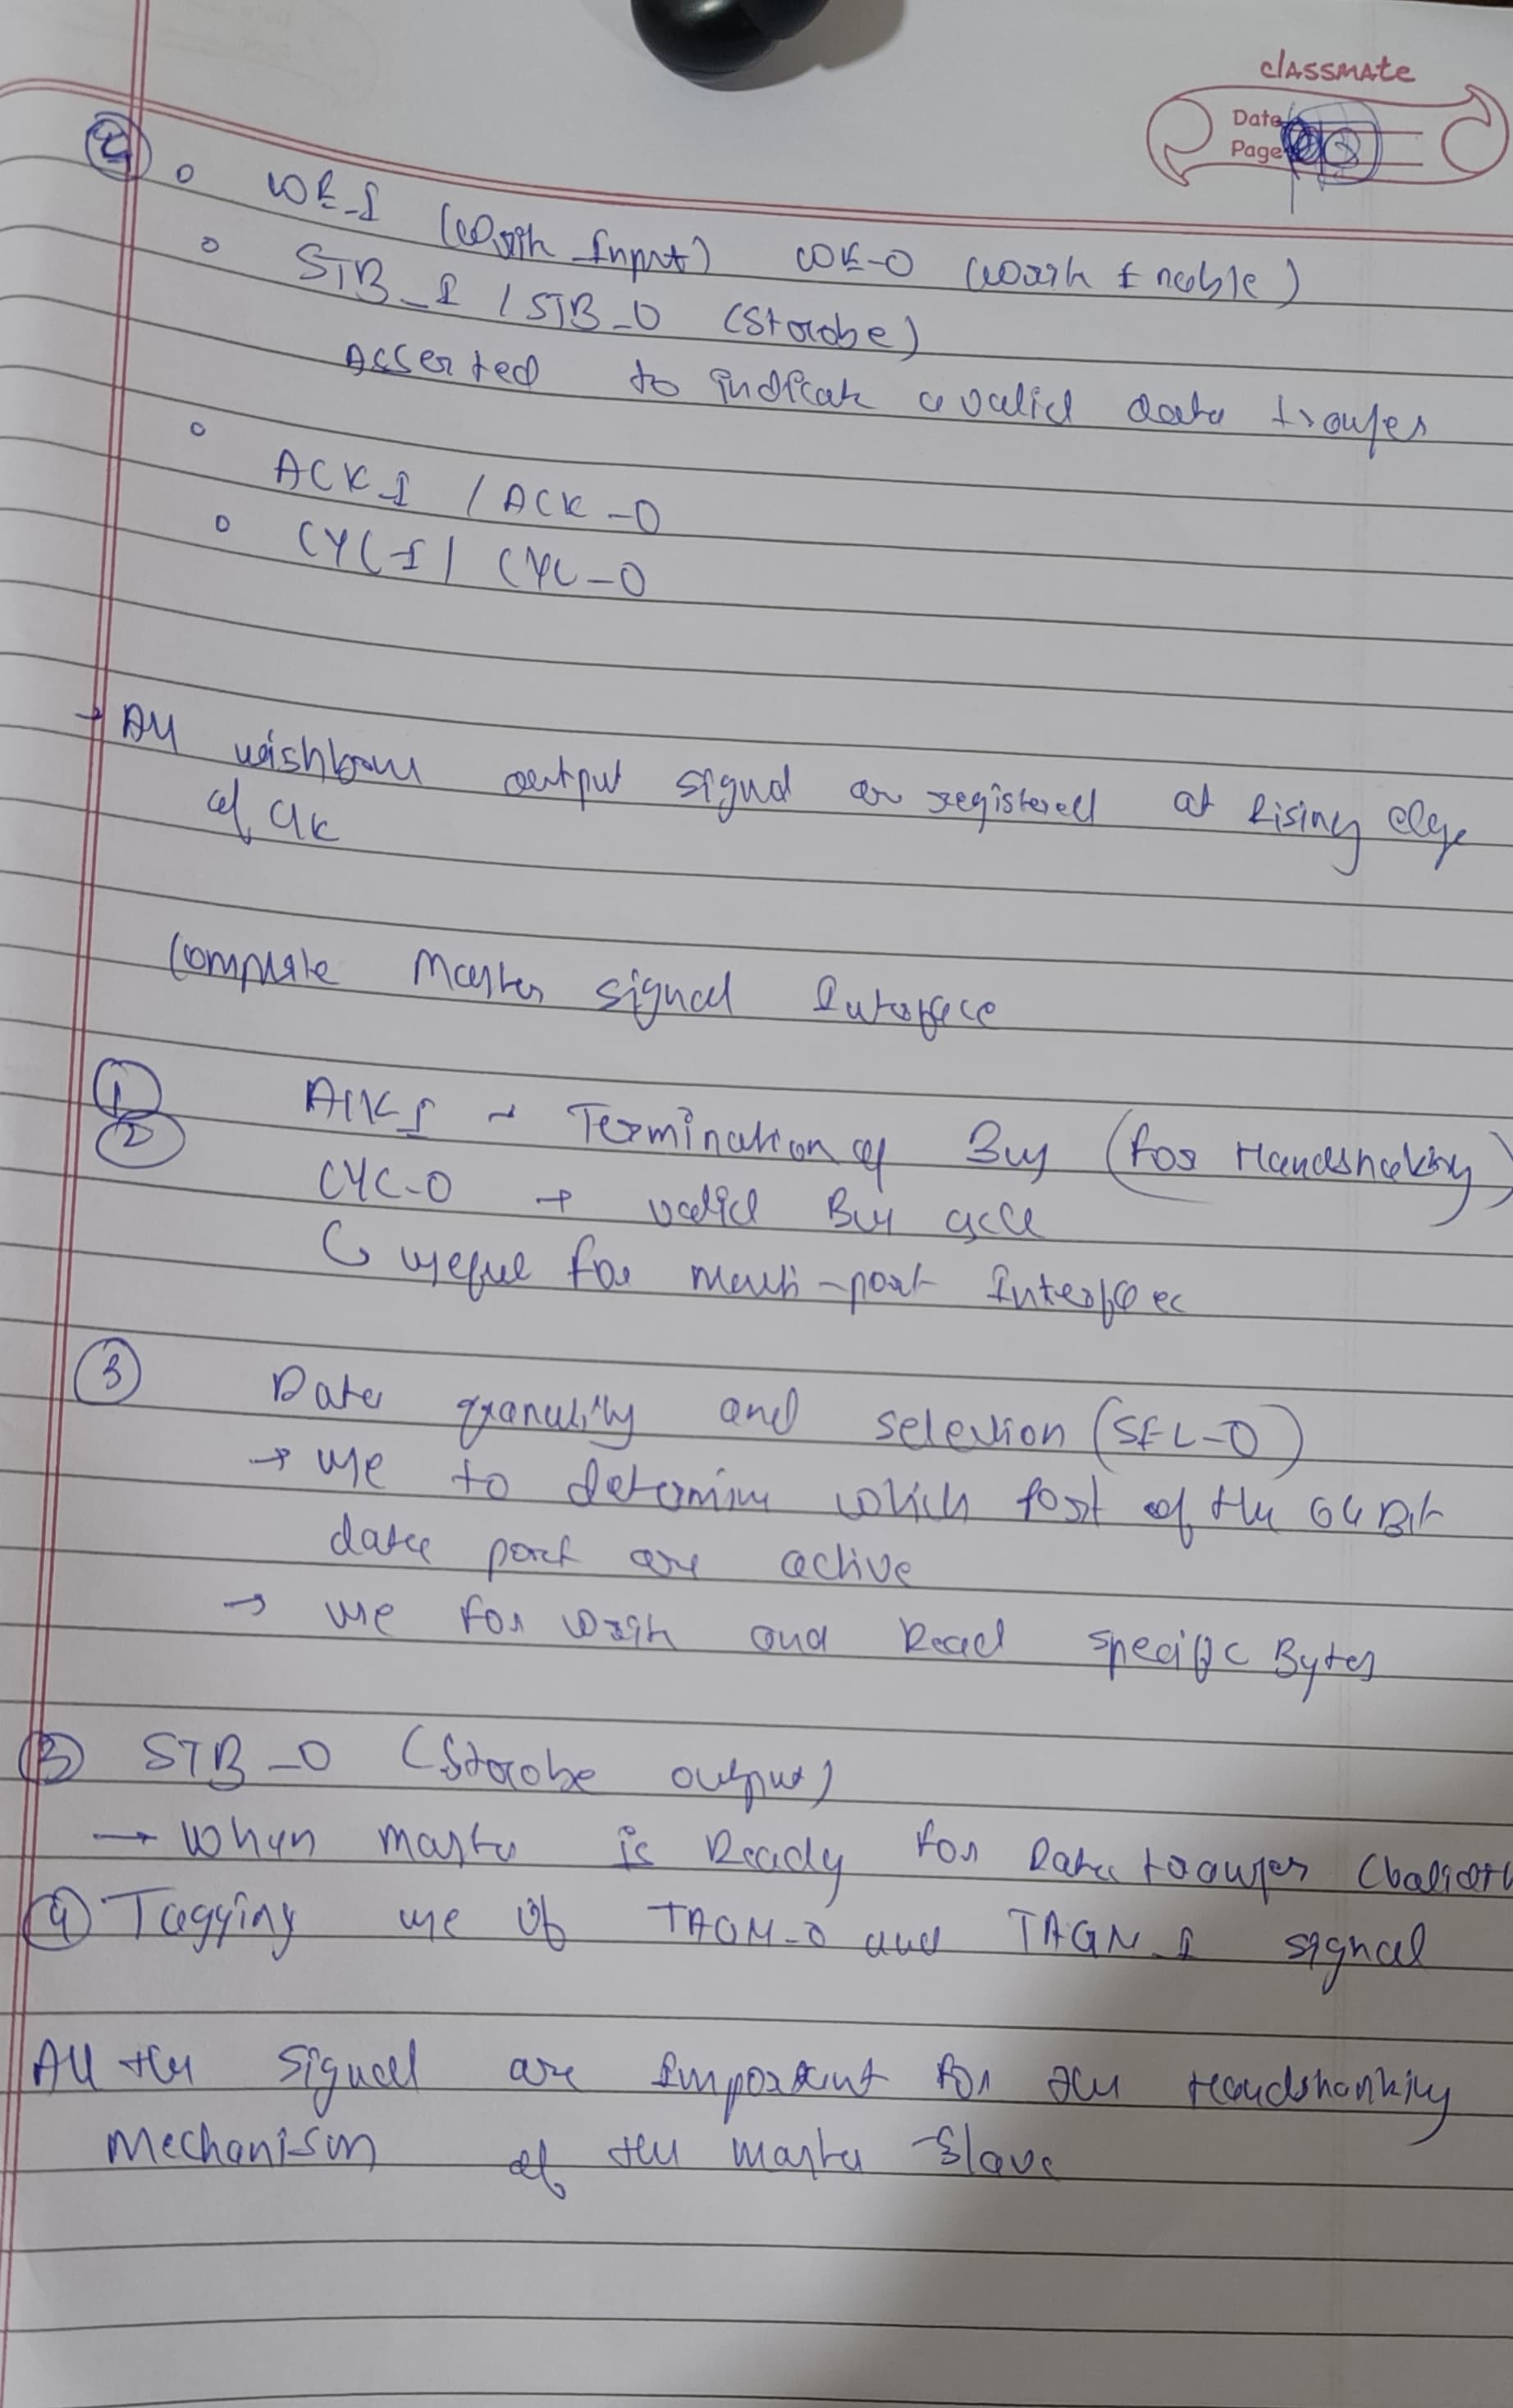 classmate
Date
Page
② ○ WE_I (Write Input) WE-O (Write Enable)
○ STB_I / STB_O (Strobe)
Asserted to indicate a valid data transfer
○ ACK_I / ACK-O
○ CYC-I / CYC-O
→ All wishbone output signal are registered at Rising edge
of clk
Complete Master signal Interface
① ACK_I → Termination of Bus (for Handshaking)
② CYC-O → valid Bus cycle
↳ useful for multi-port Interface
③ Data granulity and selection (SEL-O)
→ use to determine which part of the 64 Bit
data port are active
→ use for write and Read specific Bytes
③ STB_O (Strobe output)
→ When master is Ready for Data transfer
④ Tagging use of TAGN-O and TAGN_I signal
All the signal are Important for the Handshanking
Mechanism of the master Slave